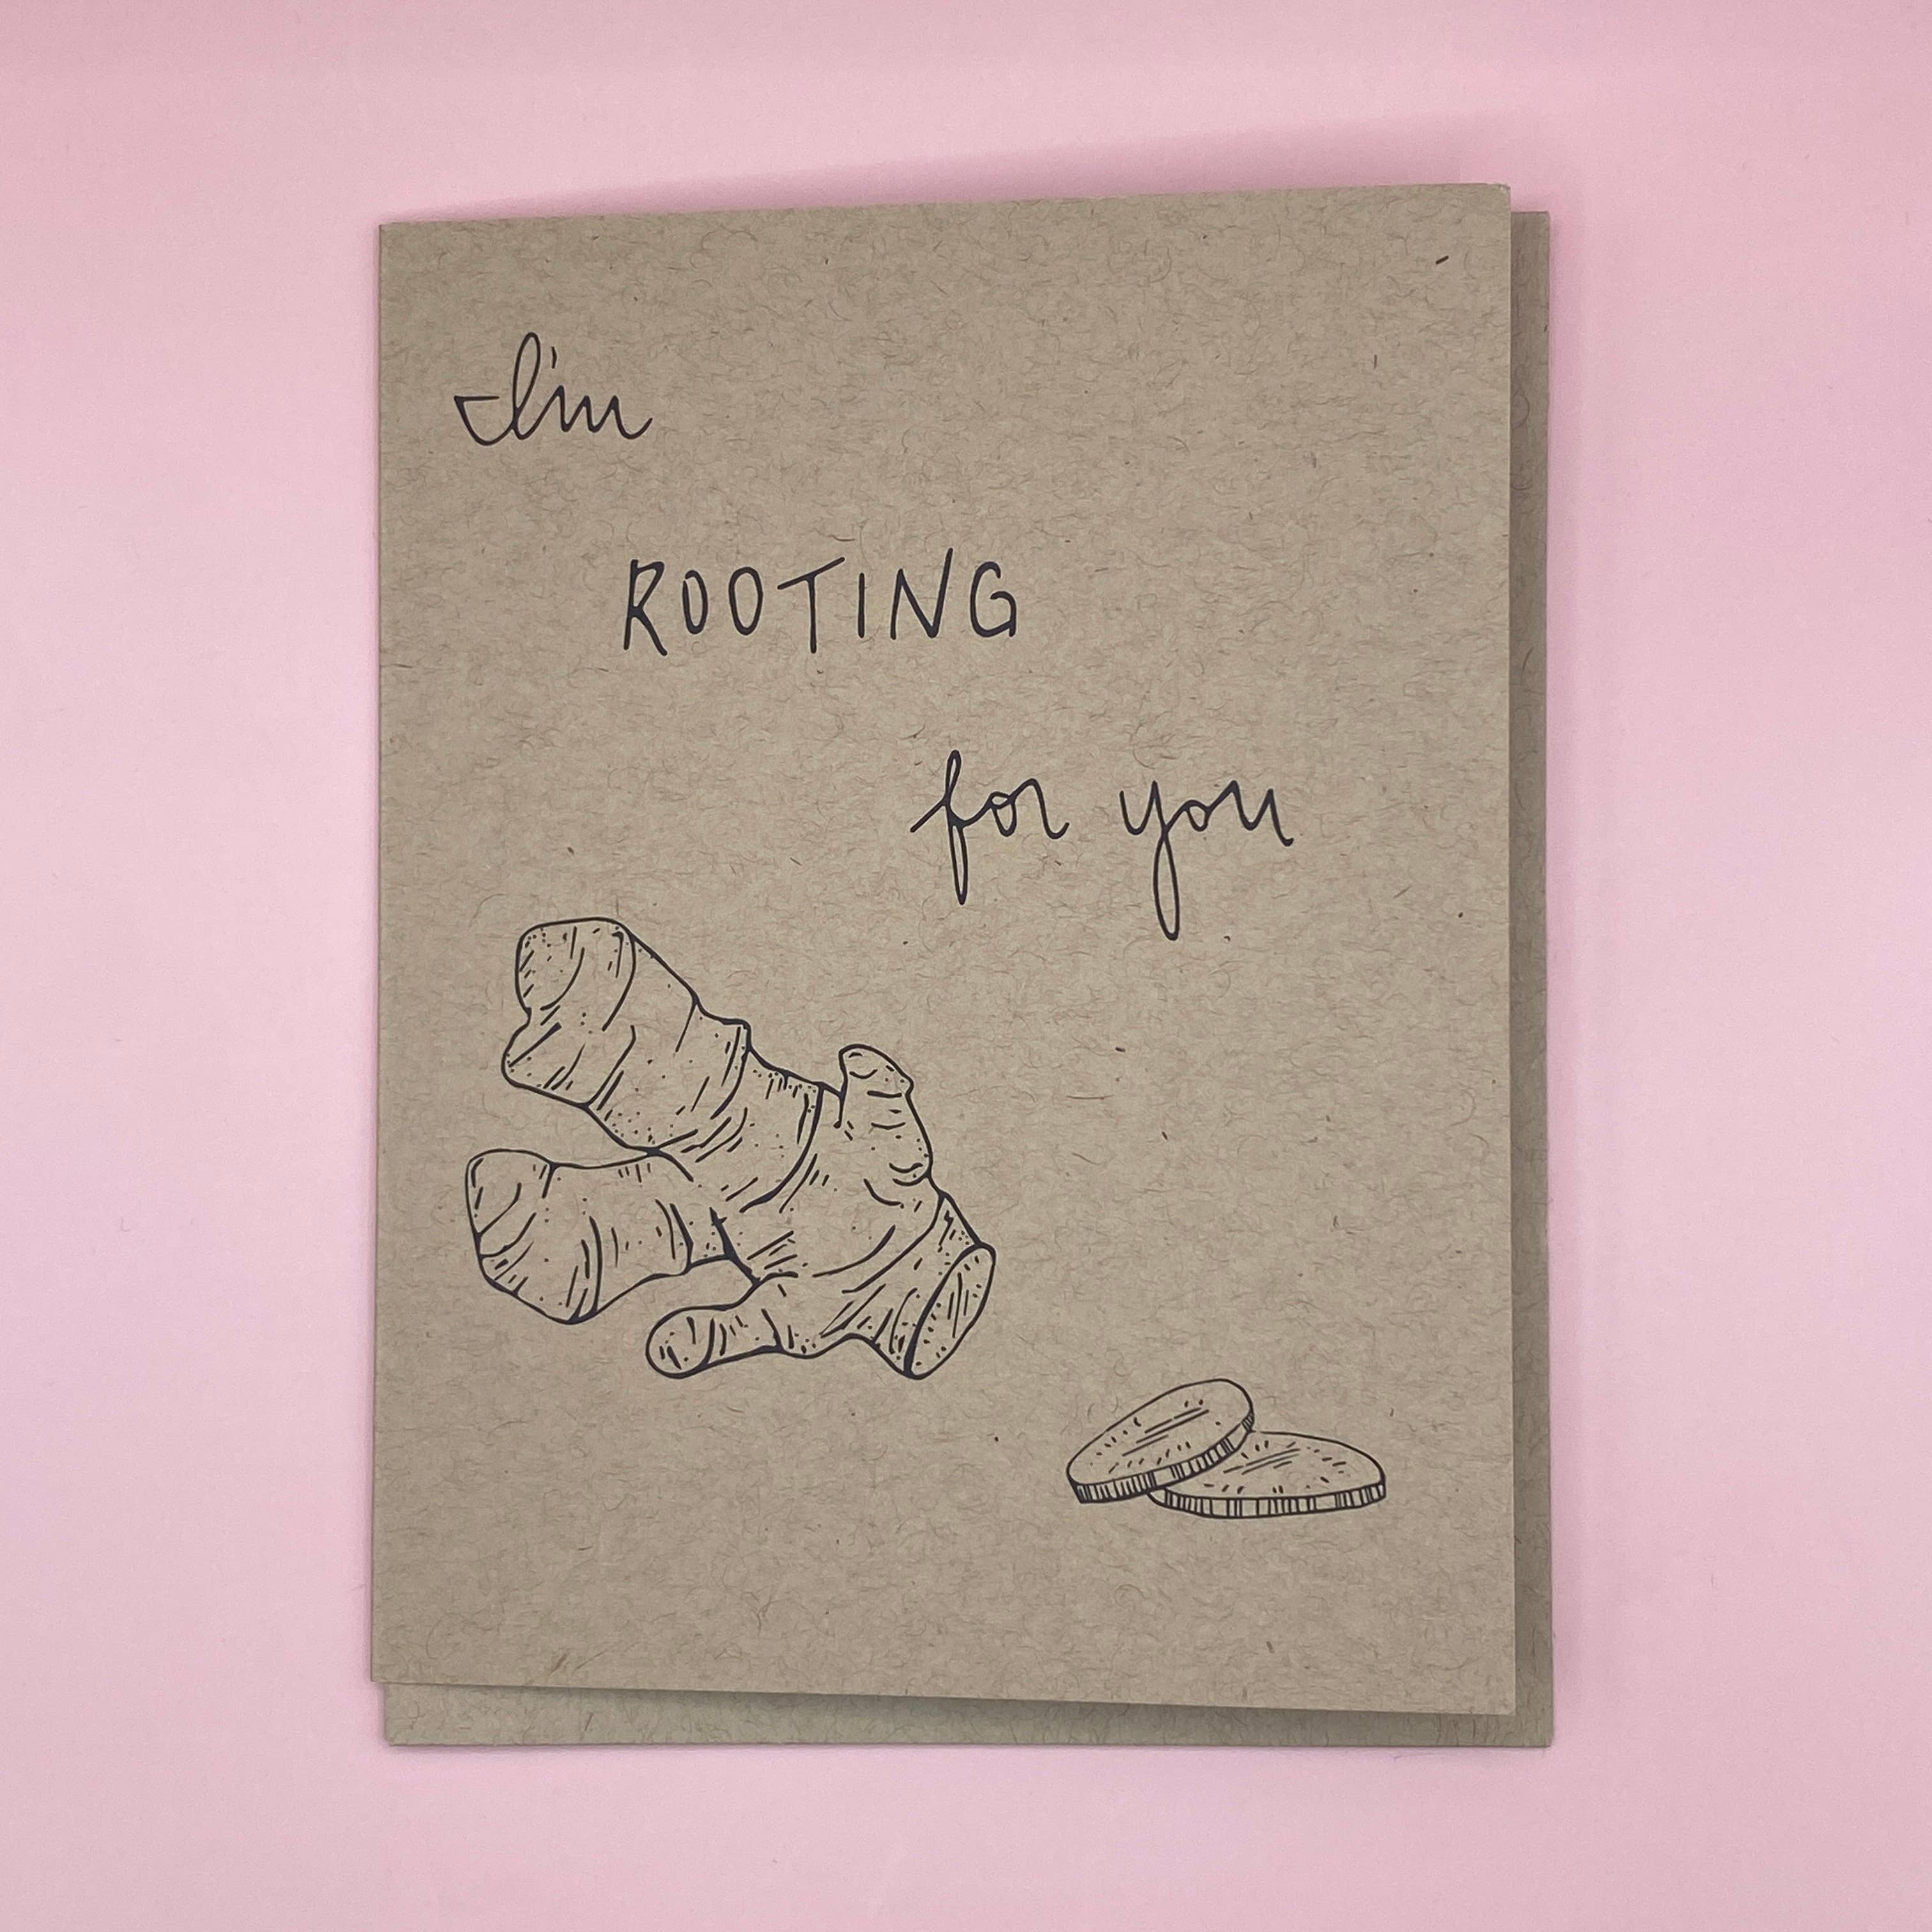 I'm
ROOTING
for you